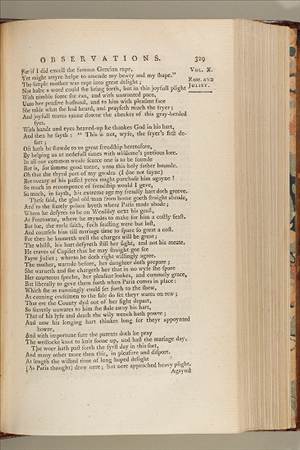 OBSERVATIONS.
329
VOL. X.
ROM. AND
JULIET.
For if I did excell the famous Grecian rape,
Yet might attyre helpe to amende my bewty and my shape."
The simple mother was rapt into great delight;
Not halfe a word could she bring forth, but in this joyfull plight
With nimble foote she ran, and with unwonted pace,
Unto her pensive husband, and to him with pleasant face
She tolde what she had heard, and prayseth much the fryer;
And joyfull teares ranne downe the cheekes of this gray-berded
syer.
With hands and eyes heaved-up he thankes God in his hart,
And then he sayth: "This is not, wyfe, the fryer's first de-
sart;
Oft hath he showde to us great frendship heretofore,
By helping us at nedefull times with wisdome's pretious lore.
In all our common weale scarce one is to be founde
But is, for somme good torne, unto this holy father bounde.
Oh that the thyrd part of my goodes (I doe not fayne)
But twenty of his passed yeres might purchase him agayne!
So much in recompence of frendship would I geve,
So much, in fayth, his extreme age my frendly hart doth greeve.
These said, the glad old man from home goeth straight abrode,
And to the stately palace hyeth where Paris made abode;
Whom he desyres to be on Wensday next his geast,
At Freetowne, where he myndes to make for him a costly feast.
But loe, the earle saith, such feasting were but lost,
And counsels him till mariage time to spare so great a cost.
For then he knoweth well the charges will be great;
The whilst, his hart desyreth still her sight, and not his meate.
He craves of Capilet that he may straight goe see
Fayre Juliet; wherto he doth right willingly agree.
The mother, warnde before, her daughter doth prepare;
She warneth and she chargeth her that in no wyse she spare
Her courteous speche, her pleasant lookes, and commely grace,
But liberally to geve them foorth when Paris comes in place:
Which she as cunningly could set forth to the shew,
As cunning craftsmen to the sale do set theyr wares on rew;
That ere the County dyd out of her sight depart,
So secretly unwares to him she stale away his hart,
That of his lyfe and death the wily wench hath powre;
And now his longing hart thinkes long for theyr appoynted
howre,
And with importune sute the parents doth he pray
The wedlocke knot to knit soone up, and hast the mariage day.
The woer hath past forth the fyrst day in this sort,
And many other more then this, in pleasure and disport.
At length the wished time of long hoped delight
(As Paris thought) drew nere; but nere approched heavy plight.
Agaynst